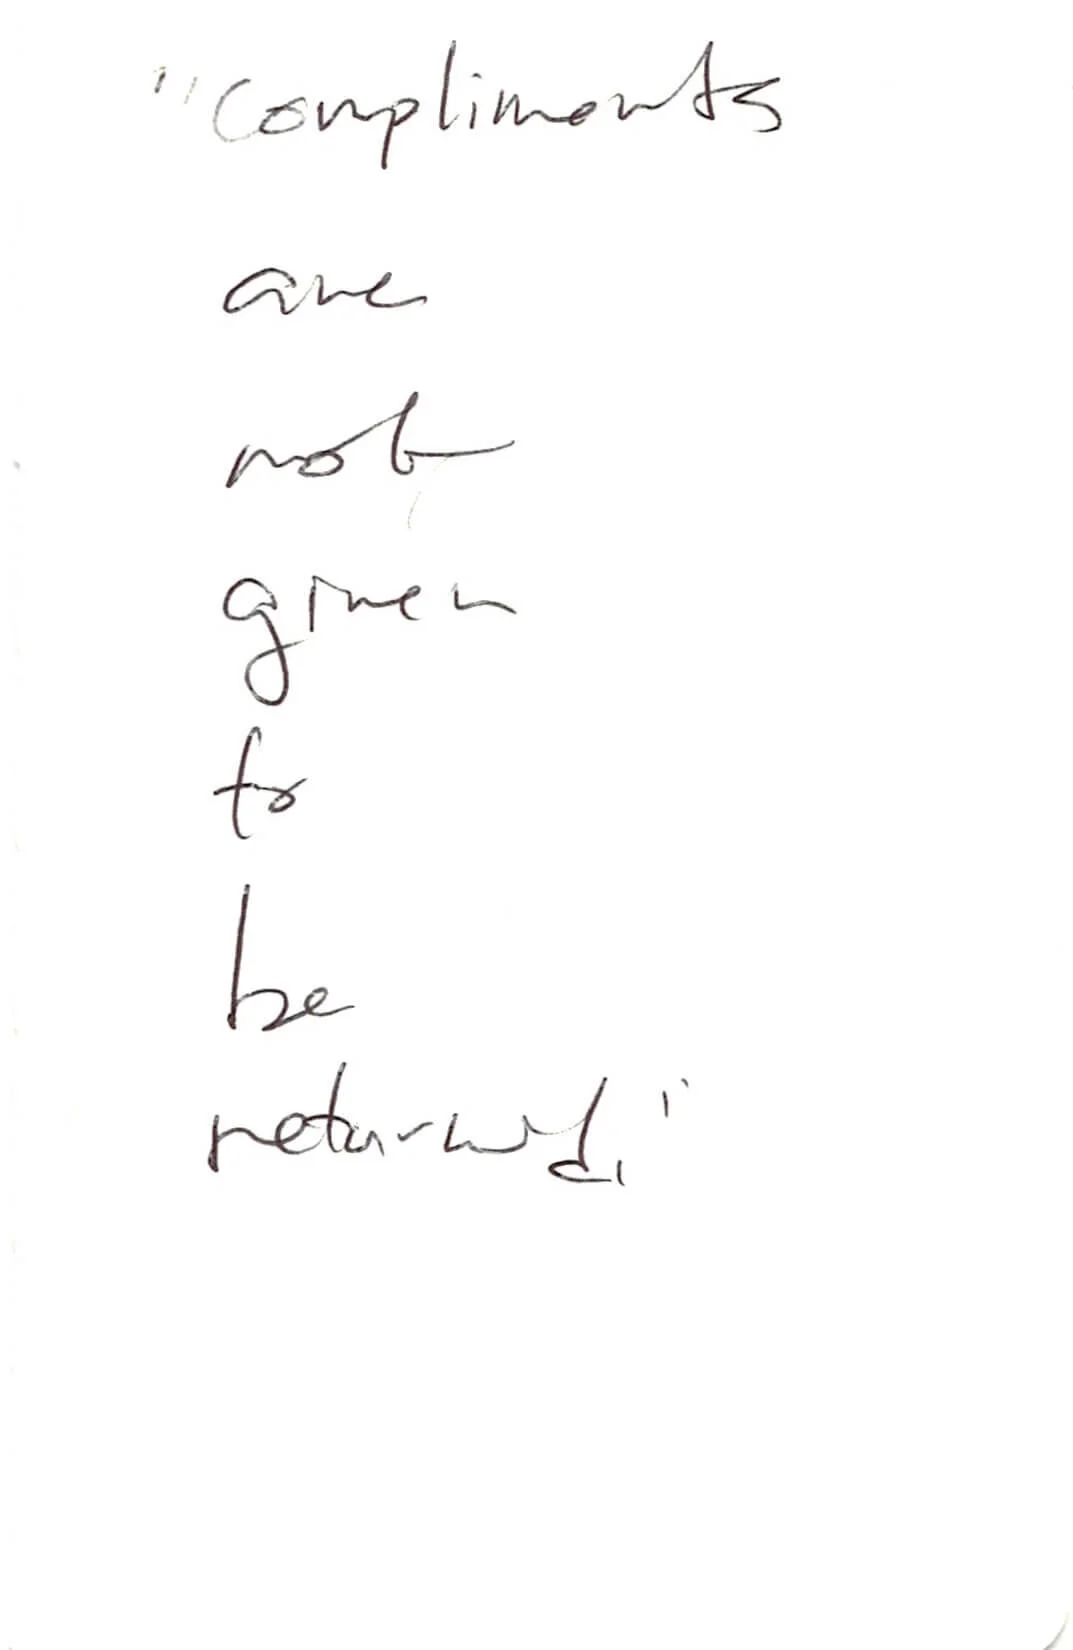 "Compliments
are
not
given
to
be
returned."